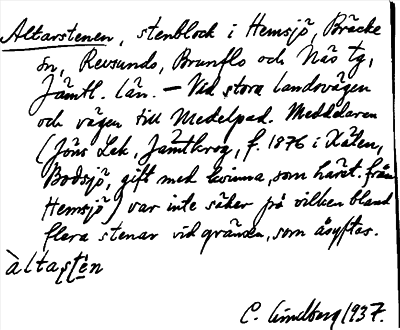 Altarstenen, stenblock i Hemsjö, Bräcke
sn, Revsunds, Brunflo och Näs tg,
Jämtl. län. – Vid stora landsvägen
och vägen till Medelpad. Meddelaren
(Jöns Lek, Jämtkrog, f. 1876 i Xälen,
Bodsjö, gift med kvinna, som härst. från
Hemsjö) var inte säker på vilken bland
flera stenar vid gränsen, som åsyftas.
àltastèn
C. Lindberg 1937.